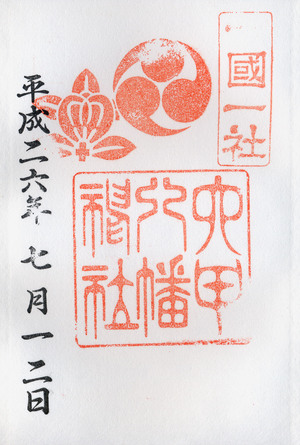 國一社
六甲
八幡
神社
平成二六年 七月一二日